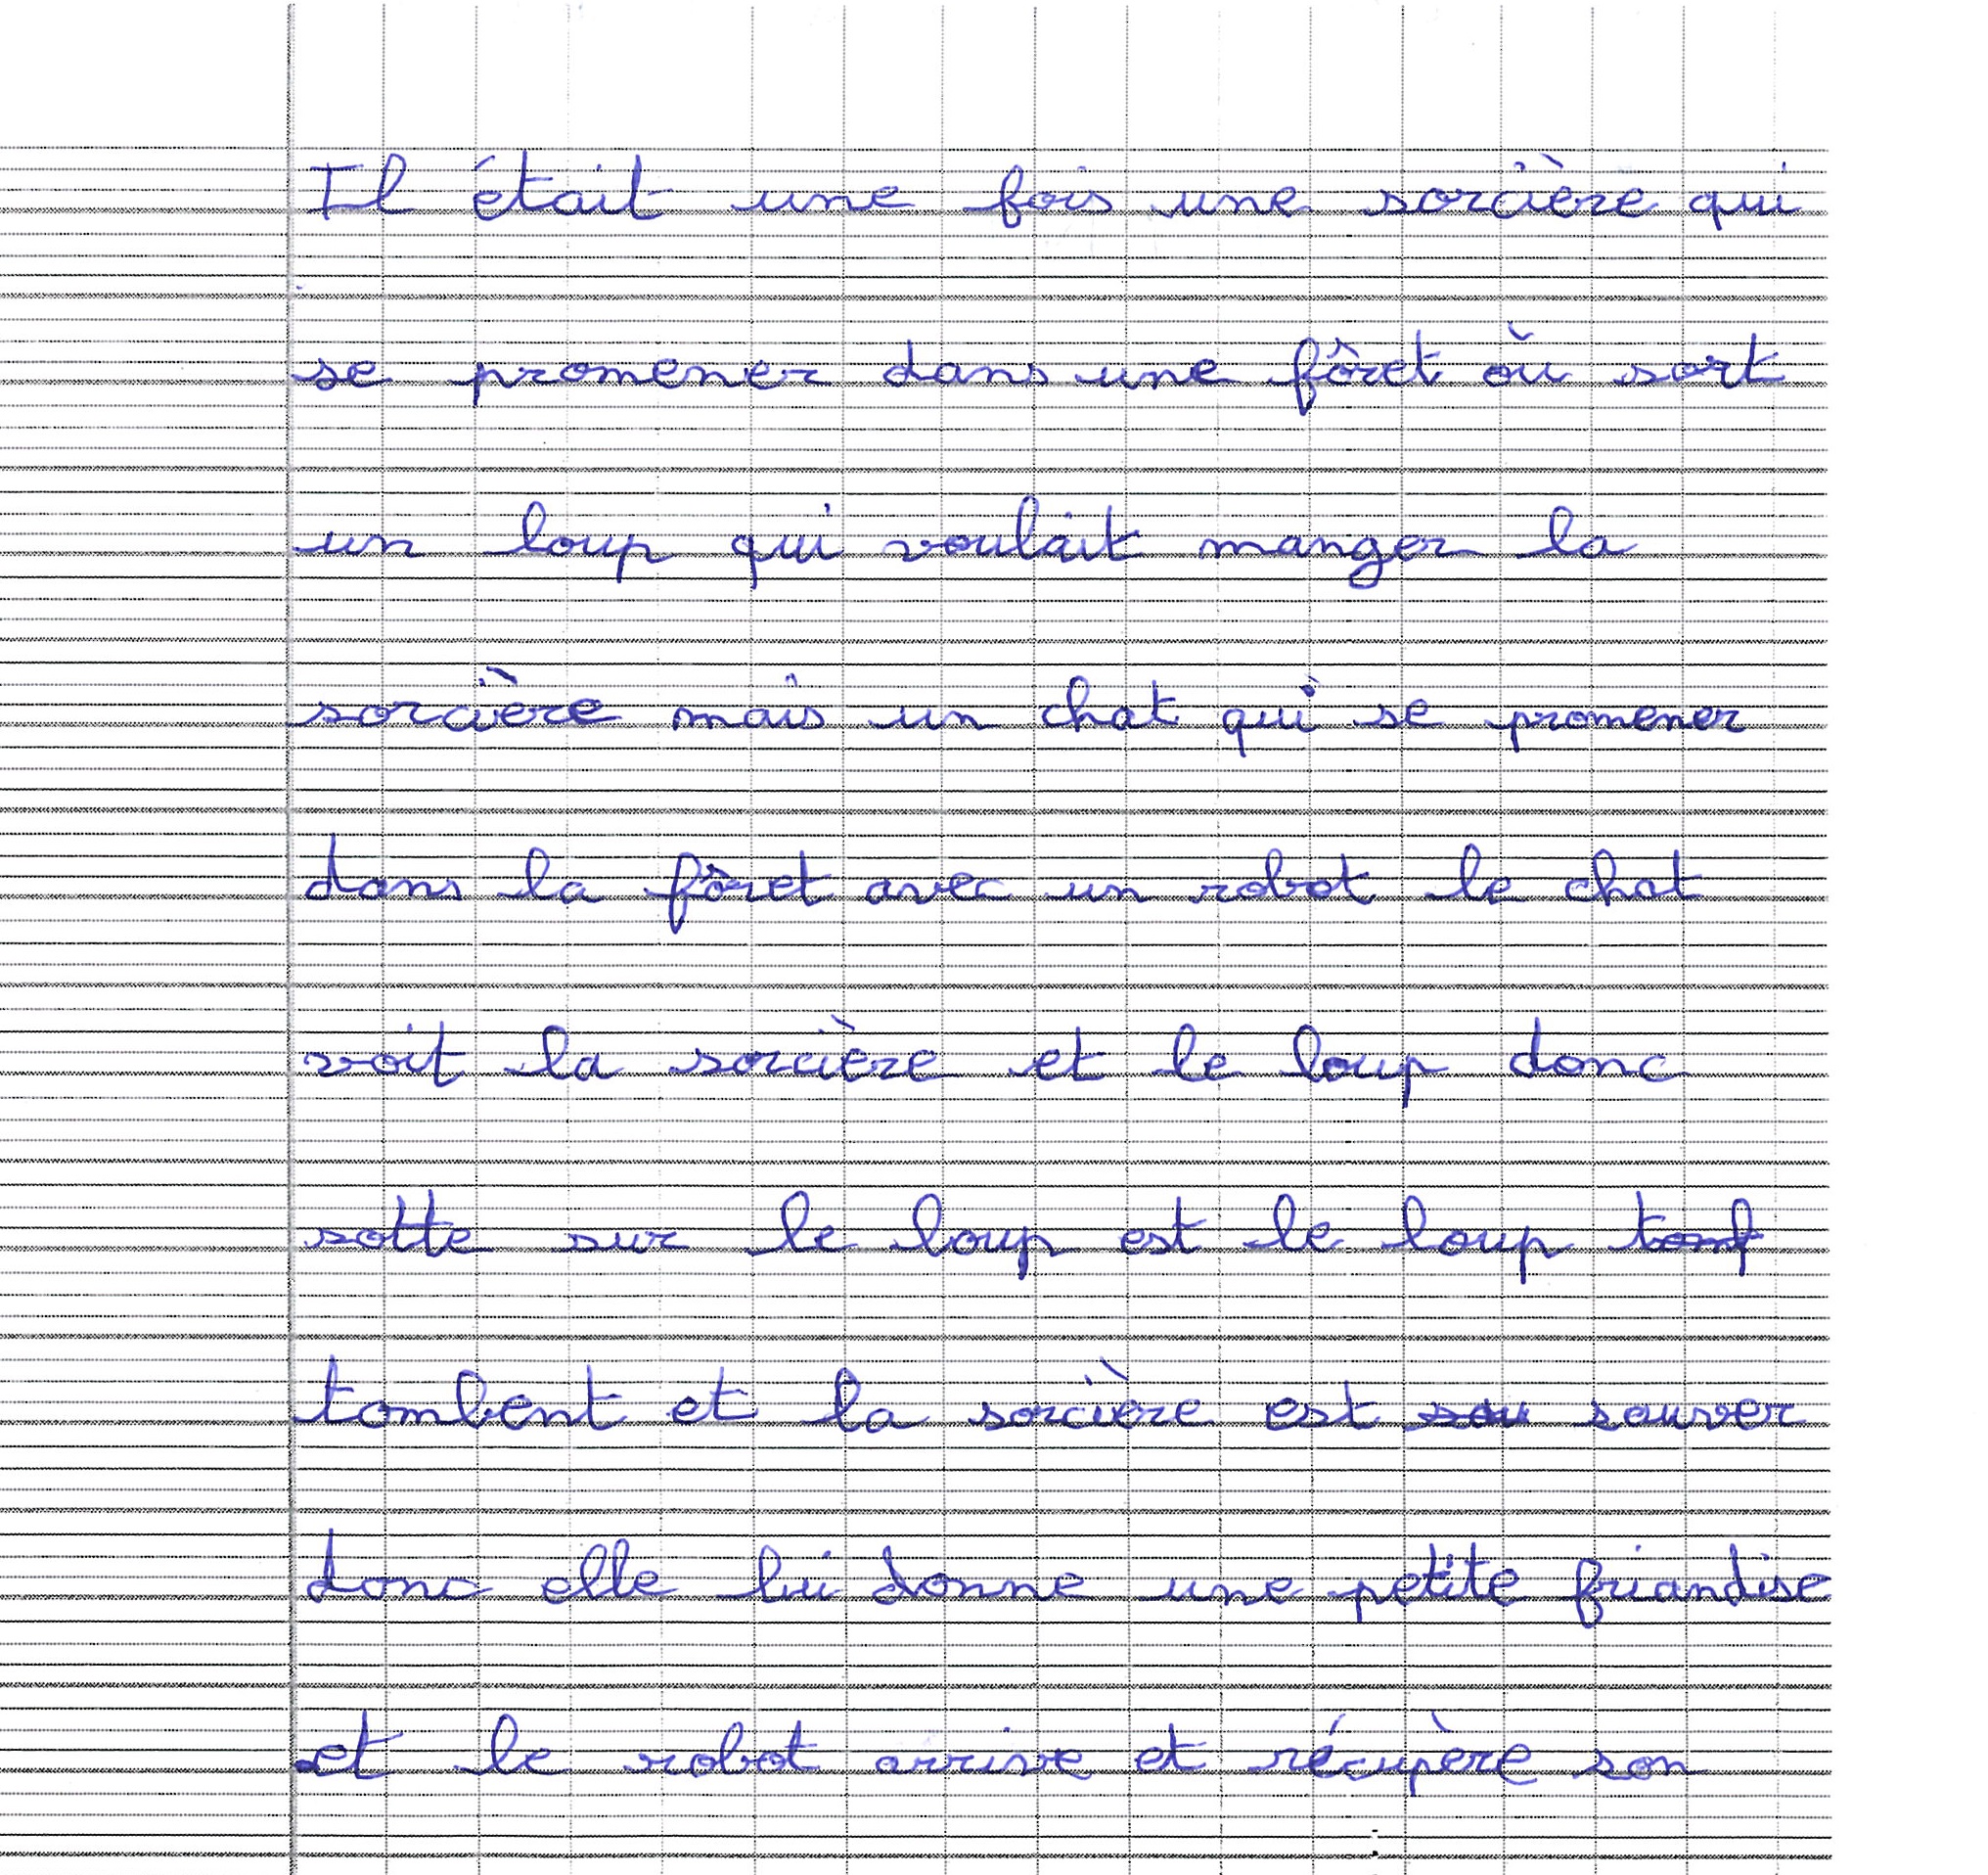 Il était une fois une sorcière qui
se promener dans une fôret où sort
un loup qui voulait manger la
sorcière mais un chat qui se promener
dans la fôret avec un robot le chat
voit la sorcière et le loup donc
sotte sur le loup est le loup
tombent et la sorcière est sou sauver
donc elle lui donne une petite friandise
et le robot arrive et récupère son